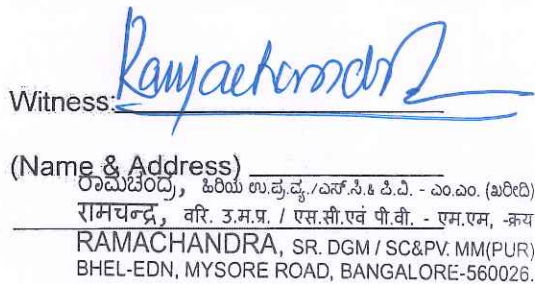 Witness: Ramachandra
(Name & Address)
ರಾಮಚಂದ್ರ, ಹಿರಿಯ ಉ.ಪ್ರ.ವ್ಯ./ಎಸ್.ಸಿ.& ಪಿ.ವಿ. - ಎಂ.ಎಂ. (ಖರೀದಿ)
रामचन्द्र, वरि. उ.म.प्र. / एस.सी.एवं पी.वी. - एम.एम, -क्रय
RAMACHANDRA, SR. DGM / SC&PV. MM(PUR)
BHEL-EDN, MYSORE ROAD, BANGALORE-560026.